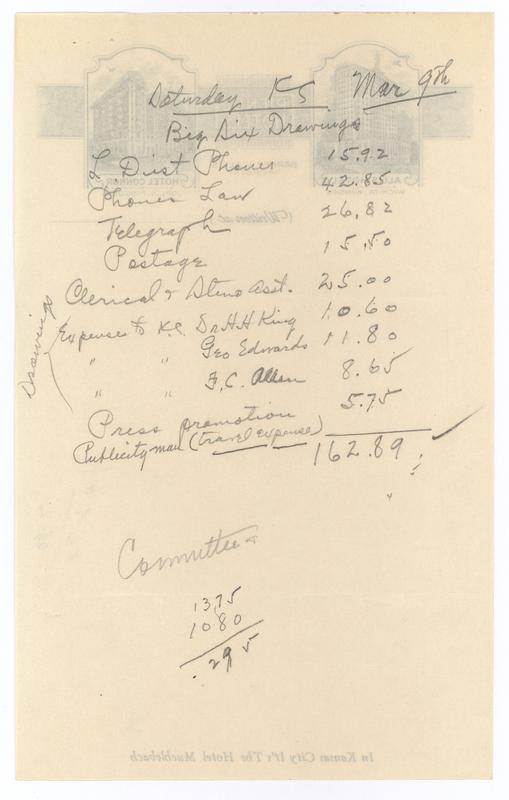 Saturday KS Mar 9th
Big Six Drawings
L Dist Phones 15.92
Phones Law 42.85
Telegraph 26.82
Postage 15.50
Clerical & Steno Asst. 25.00
Drawings
Expenses to K.C. Dr. H H King 10.60
" " Geo Edwards 11.80
" " F. C. Allen 8.65
Press promotion 5.75
Publicity man (travel expense) 162.89
Committee
1375
1080
.295
HOTEL CONNOR
Written at
In Kansas City It's The Hotel Muehlebach